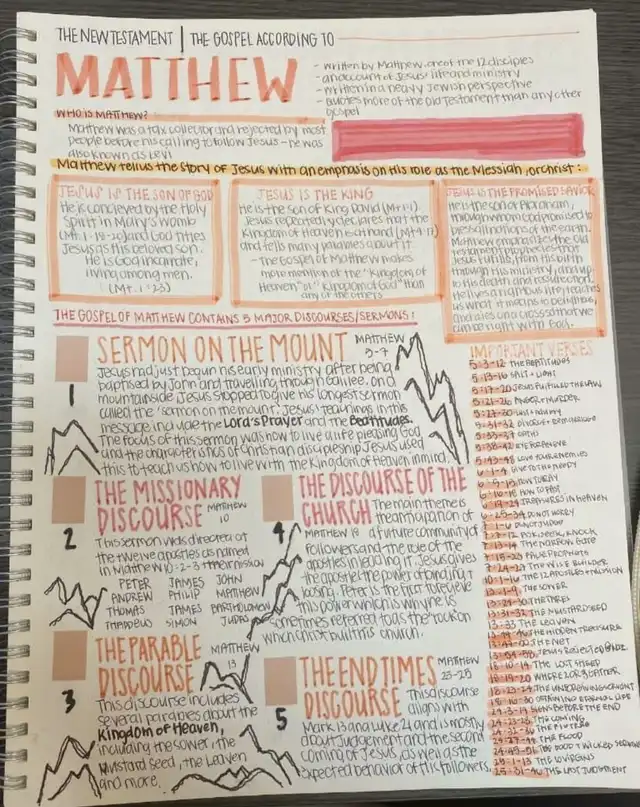 THE NEW TESTAMENT | THE GOSPEL ACCORDING TO
MATTHEW
- written by Matthew, one of the 12 disciples
- an account of Jesus' life and ministry
- written in a heavy Jewish perspective
- quotes more of the Old Testament than any other
gospel
WHO IS MATTHEW?
Matthew was a tax collector and rejected by most
people before his calling to follow Jesus - he was
also known as Levi
Matthew tells us the story of Jesus with an emphasis on his role as the Messiah, or christ:
JESUS IS THE SON OF GOD
He is concieved by the Holy
Spirit in Mary's womb
(Mt. 1:18-20) and God titles
Jesus as his beloved son.
He is God incarnate,
living among men.
(Mt. 1:23)
JESUS IS THE KING
He is the son of King David (Mt 1:1).
Jesus repeatedly declares that the
Kingdom of Heaven is at hand (Mt 4:17)
and tells many parables about it
- The Gospel of Matthew makes
more mention of the "Kingdom of
Heaven" or "Kingdom of God" than
any of the others
JESUS IS THE PROMISED SAVIOR
He is the son of Abraham,
through whom God promised to
bless all nations of the earth.
Matthew emphasizes the old
testament prophesies that
Jesus fulfills, from his birth
through his ministry, and up
to his death and resurrection.
He lives a righteous life, teaches
us what it means to be righteous,
and dies on a cross so that we
can be right with God.
THE GOSPEL OF MATTHEW CONTAINS 5 MAJOR DISCOURSES/SERMONS:
1
SERMON ON THE MOUNT
MATTHEW
5-7
Jesus had just begun his early ministry after being
baptised by John and travelling through Galilee. On a
mountainside Jesus stopped to give his longest sermon
called the 'sermon on the mount'. Jesus' teachings in this
message include the Lord's Prayer and the Beatitudes.
The focus of this sermon was how to live a life pleasing God
and the characteristics of Christian discipleship. Jesus used
this to teach us how to live with the Kingdom of Heaven in mind.
2
THE MISSIONARY
DISCOURSE
MATTHEW
10
This sermon was directed at
the twelve apostles as named
in Matthew 10:2-3 & their mission
PETER JAMES JOHN
ANDREW PHILIP MATTHEW
THOMAS JAMES BARTHOLOMEW
THADDEUS SIMON JUDAS
3
THE PARABLE
DISCOURSE
MATTHEW
13
This discourse includes
several parables about the
Kingdom of Heaven,
including the sower, the
Mustard Seed, the Leaven
and more.
4
THE DISCOURSE OF THE
CHURCH
MATTHEW 18
The main theme is
the anticipation of
a future community of
followers and the role of the
apostles in leading it. Jesus gives
the apostles the power of binding &
loosing. Peter is the first to recieve
this power which is why he is
sometimes referred to as the rock on
which Christ built his church.
5
THE END TIMES
DISCOURSE
MATTHEW
23-25
This discourse
aligns with
Mark 13 and Luke 21 and is mostly
about judgement and the second
coming of Jesus, as well as the
expected behavior of His followers.
IMPORTANT VERSES
5:3-12 THE BEATITUDES
5:13-16 SALT + LIGHT
5:17-20 JESUS FULFILLED THE LAW
5:21-26 ANGER/MURDER
5:27-30 LUST/ADULTERY
5:31-32 DIVORCE + REMARRIAGE
5:33-37 OATHS
5:38-42 EYE FOR EYE
5:43-48 LOVE YOUR ENEMIES
6:1-4 GIVE TO THE NEEDY
6:5-15 HOW TO PRAY
6:16-18 HOW TO FAST
6:19-24 TREASURES IN HEAVEN
6:25-34 DO NOT WORRY
7:1-6 DO NOT JUDGE
7:7-12 ASK, SEEK, KNOCK
7:13-14 THE NARROW GATE
7:15-23 FALSE PROPHETS
7:24-27 THE WISE BUILDER
10:1-16 THE 12 APOSTLES + MISSION
13:1-9 THE SOWER
13:24-30 THE TARES
13:31-32 THE MUSTARD SEED
13:33 THE LEAVEN
13:44 THE HIDDEN TREASURE
THE NET
13:54-58 JESUS REJECTED
18:10-14 THE LOST SHEEP
18:19-20 WHERE 2 OR 3 GATHER
18:23-34 THE UNFORGIVING SERVANT
ETERNAL LIFE
BEFORE THE END
THE COMING
THE FIG TREE
THE FLOOD
WICKED SERVANT
25:1-13 THE 10 VIRGINS
25:31-46 THE LAST JUDGEMENT